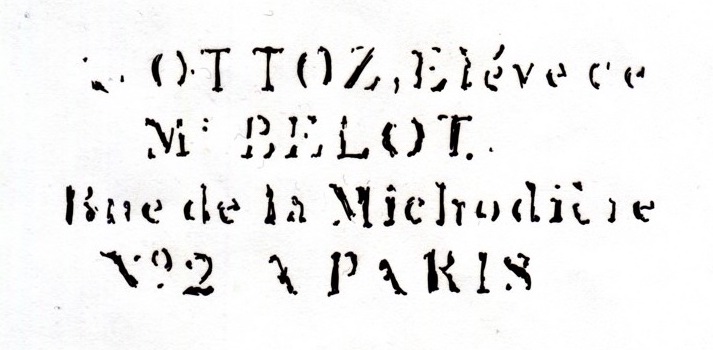 OTTOZ, Eléve de
Mr BELOT.
Rue de la Michodière
No 2 A PARIS